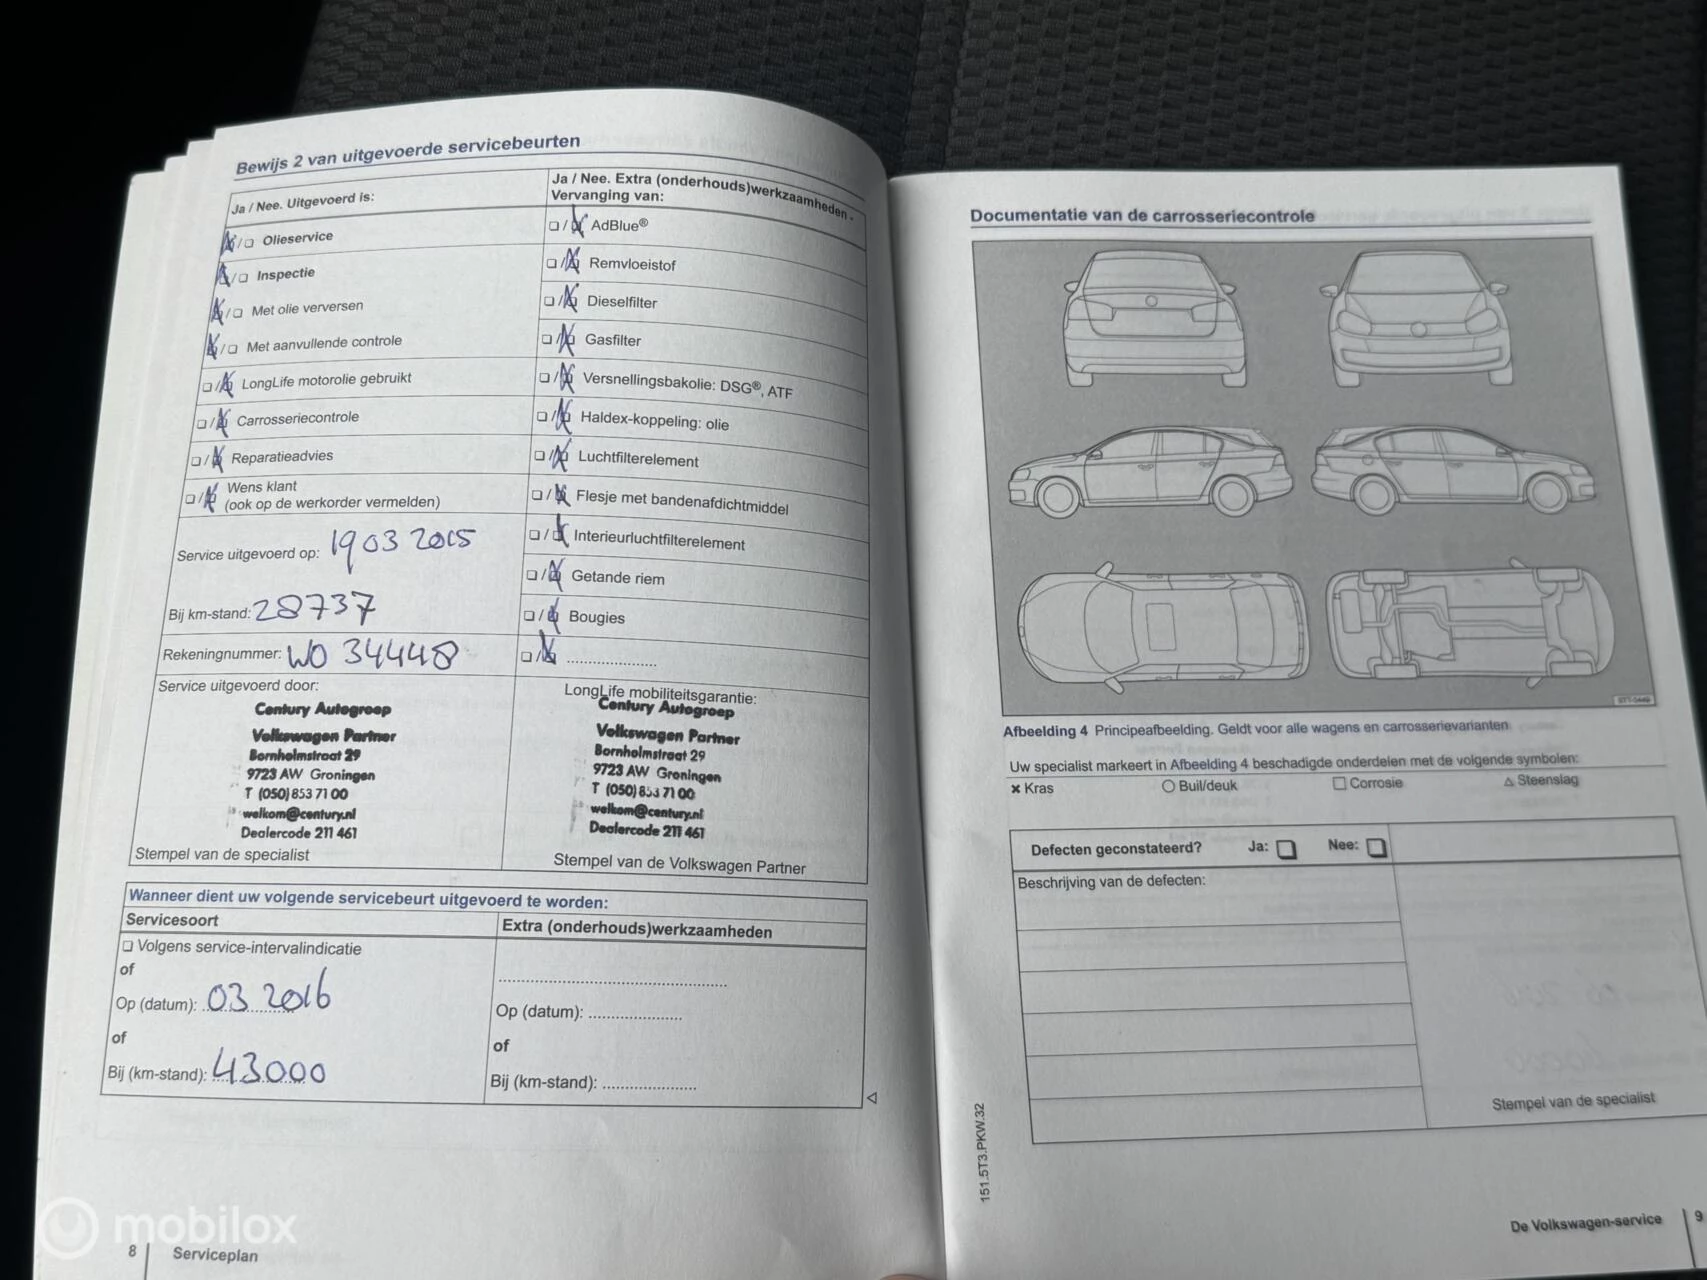 Bewijs 2 van uitgevoerde servicebeurten
Ja / Nee. Uitgevoerd is:
Olieservice
Inspectie
Met olie verversen
Met aanvullende controle
LongLife motorolie gebruikt
Carrosseriecontrole
Reparatieadvies
Wens klant
(ook op de werkorder vermelden)
Service uitgevoerd op: 19 03 2015
Bij km-stand: 28737
Rekeningnummer: WO 34448
Ja / Nee. Extra (onderhouds)werkzaamheden -
Vervanging van:
AdBlue®
Remvloeistof
Dieselfilter
Gasfilter
Versnellingsbakolie: DSG®, ATF
Haldex-koppeling: olie
Luchtfilterelement
Flesje met bandenafdichtmiddel
Interieurluchtfilterelement
Getande riem
Bougies
Service uitgevoerd door:
Century Autogroep
Volkswagen Partner
Bornholmstraat 29
9723 AW Groningen
T (050) 853 71 00
welkom@century.nl
Dealercode 211 461
Stempel van de specialist
LongLife mobiliteitsgarantie:
Century Autogroep
Volkswagen Partner
Bornholmstraat 29
9723 AW Groningen
T (050) 853 71 00
welkom@century.nl
Dealercode 211 461
Stempel van de Volkswagen Partner
Wanneer dient uw volgende servicebeurt uitgevoerd te worden:
Servicesoort
Volgens service-intervalindicatie
of
Op (datum): 03 2016
of
Bij (km-stand): 43000
Extra (onderhouds)werkzaamheden
Op (datum):
of
Bij (km-stand):
mobilox
8 Serviceplan
Documentatie van de carrosseriecontrole
Afbeelding 4 Principeafbeelding. Geldt voor alle wagens en carrosserievarianten
Uw specialist markeert in Afbeelding 4 beschadigde onderdelen met de volgende symbolen:
Kras
Buil/deuk
Corrosie
Steenslag
Defecten geconstateerd? Ja: Nee:
Beschrijving van de defecten:
Stempel van de specialist
151.5T3.PKW.32
De Volkswagen-service 9